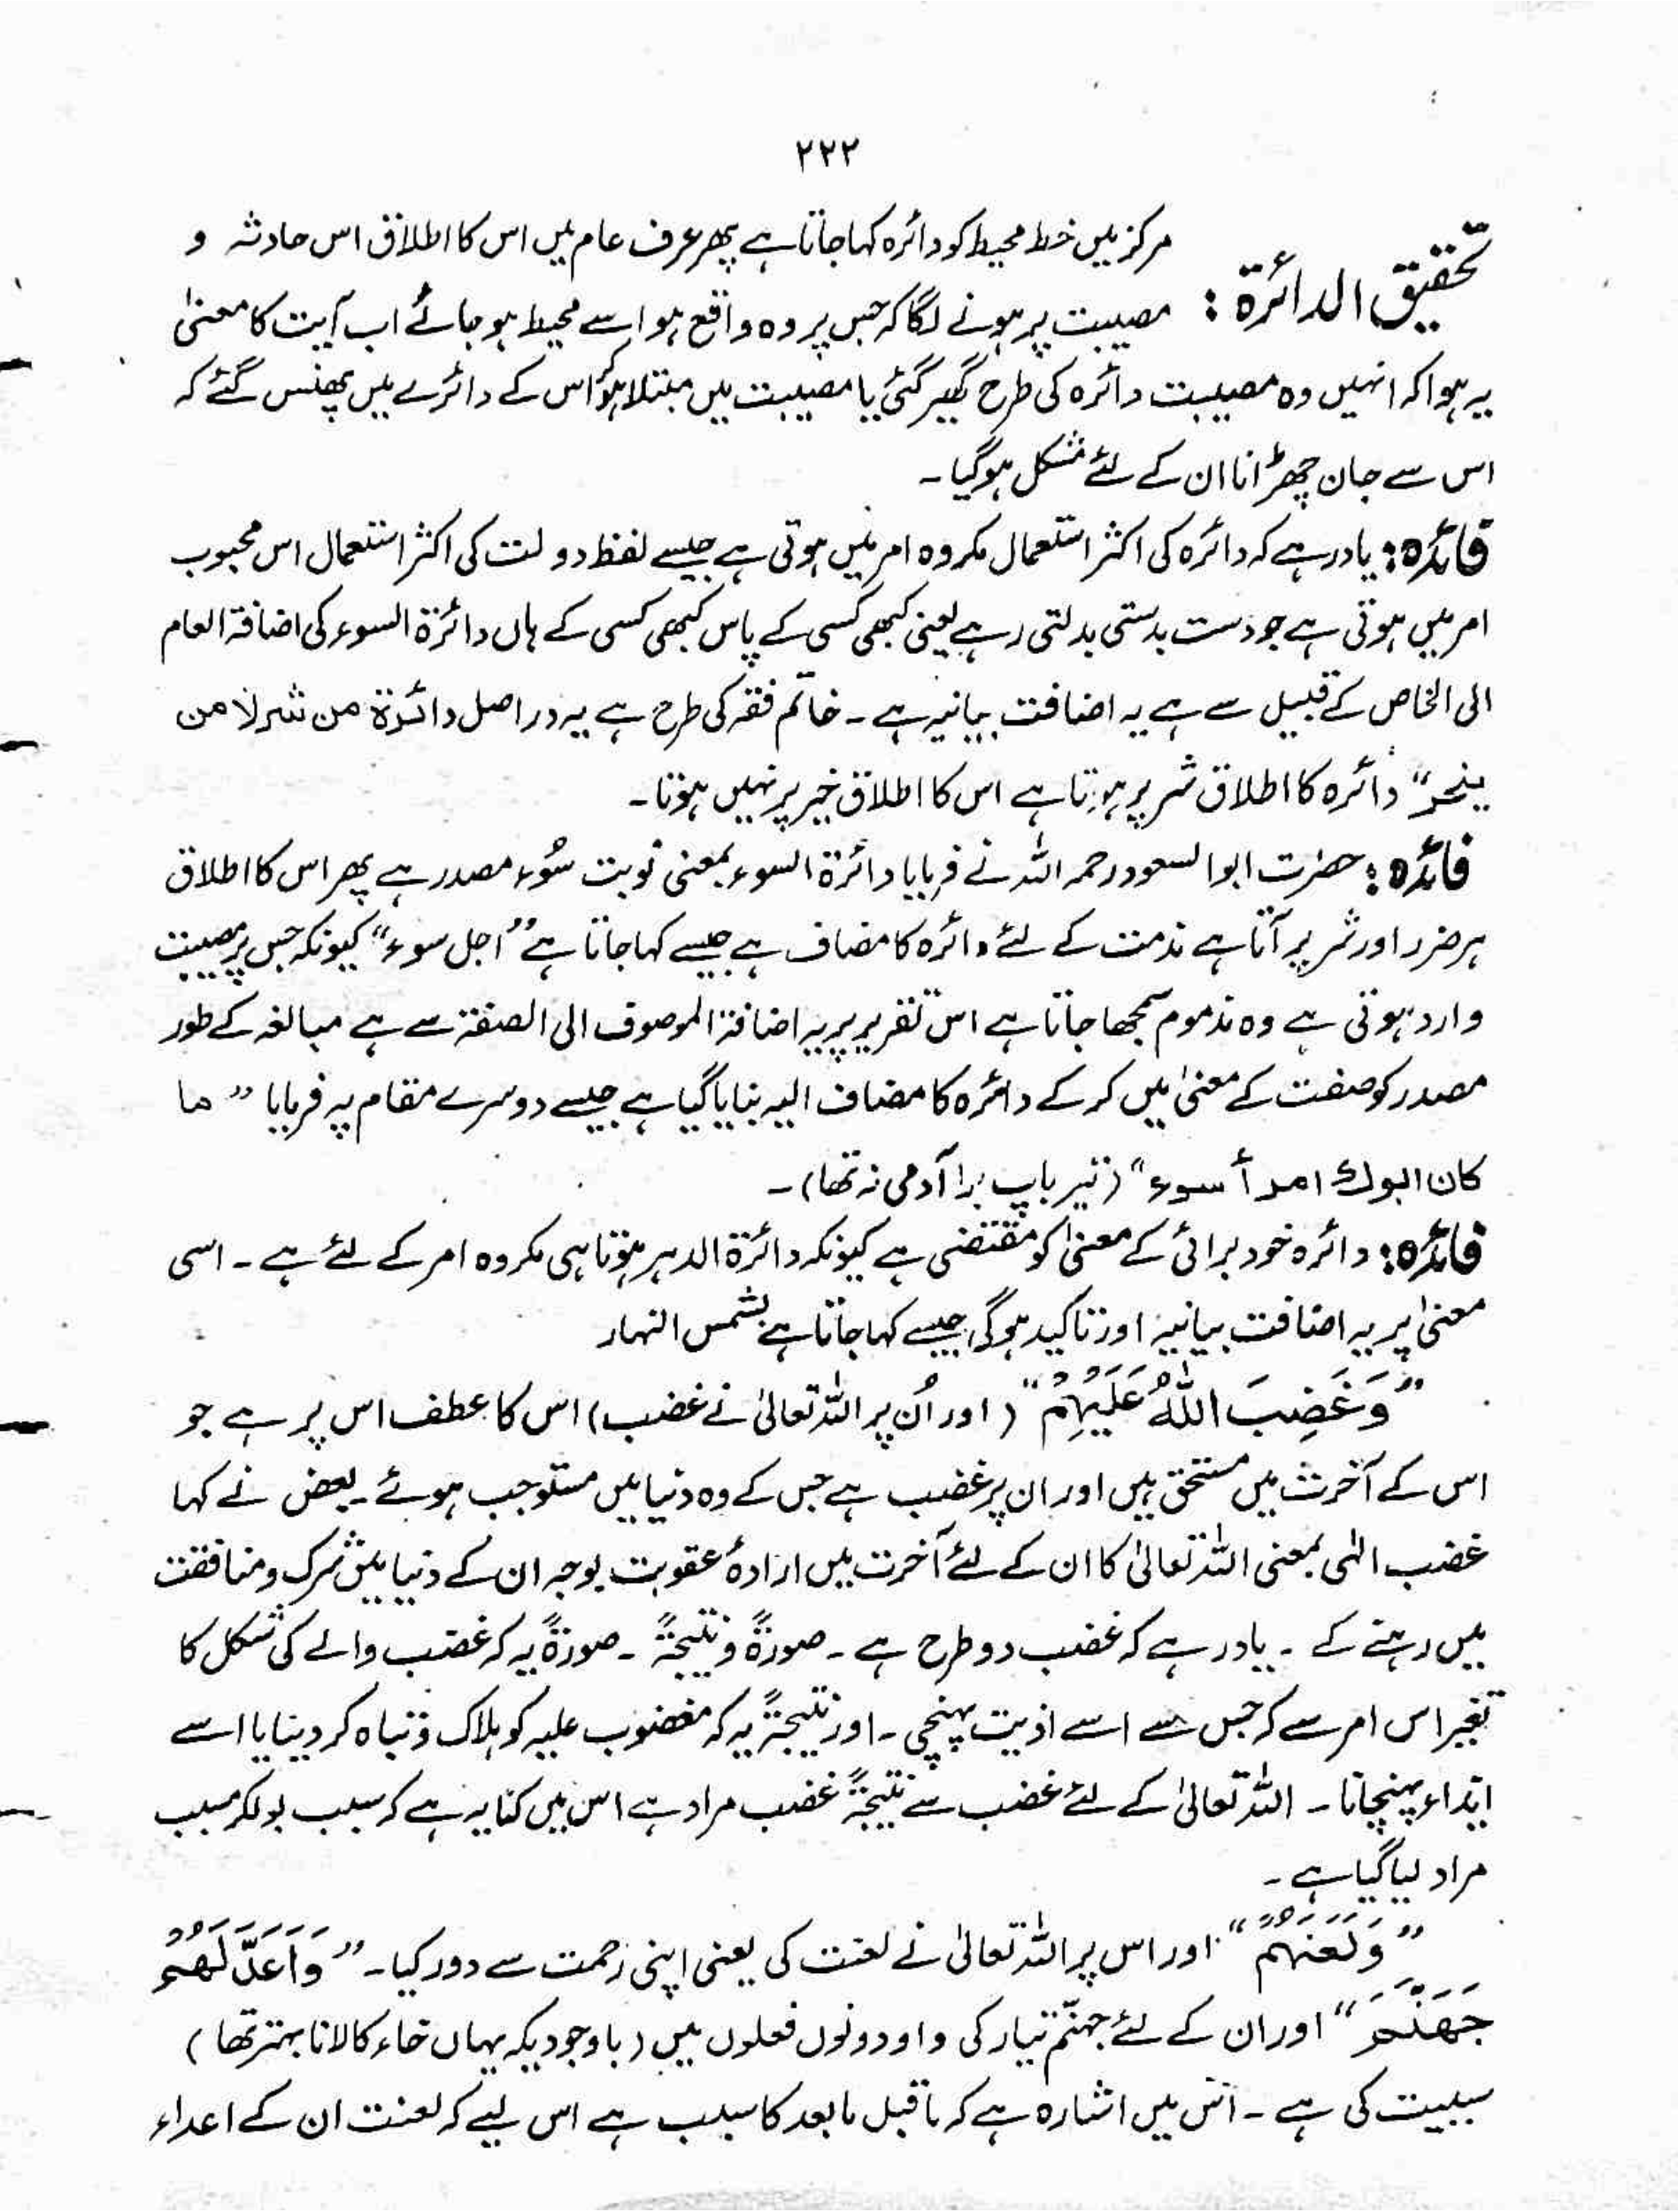 ۲۲۲
تحقیق الدائرۃ : مرکز میں خط محیط کو دائرہ کہا جاتا ہے پھر عرف عام میں اس کا اطلاق اس حادثہ و
مصیبت پر ہونے لگا کہ جس پر وہ واقع ہو اسے محیط ہو جائے اب آیت کا معنیٰ
یہ ہوا کہ انہیں وہ مصیبت دائرہ کی طرح گھیر گئی یا مصیبت میں مبتلا ہوکر اس کے دائرے میں پھنس گئے کہ
اس سے جان چھڑانا ان کے لئے مشکل ہوگیا ۔
فائدہ : یاد رہے کہ دائرہ کی اکثر استعمال مکروہ امر میں ہوتی ہے جیسے لفظ دولت کی اکثر استعمال اس محبوب
امر میں ہوتی ہے جو دست بدستی بدلتی رہے یعنی کبھی کسی کے پاس کبھی کسی کے ہاں دائرۃ السوء کی اضافۃ العام
الی الخاص کے قبیل سے ہے یہ اضافت بیانیہ ہے ۔ خاتم فقہ کی طرح ہے یہ در اصل دائرۃ من شر لا من
ینحر“ دائرہ کا اطلاق شر پر ہوتا ہے اس کا اطلاق خیر پر نہیں ہوتا ۔
فائدہ : حضرت ابو السعود رحمہ اللہ نے فرمایا دائرۃ السوء بمعنی نوبت سُوء مصدر ہے پھر اس کا اطلاق
ہر ضرر اور شر پر آتا ہے مذمت کے لئے دائرہ کا مضاف ہے جیسے کہا جاتا ہے ”اجل سوء“ کیونکہ جس پر مصیبت
وارد ہوتی ہے وہ مذموم سمجھا جاتا ہے اس تقریر پر یہ اضافۃ الموصوف الی الصفۃ سے ہے مبالغہ کے طور
مصدر کو صفت کے معنیٰ میں کر کے دائرہ کا مضاف الیہ بنایا گیا ہے جیسے دوسرے مقام پہ فرمایا ” ما
کان ابوك امرأ سوء“ (تیر باپ برا آدمی نہ تھا) ۔
فائدہ : دائرہ خود برائی کے معنیٰ کو مقتضی ہے کیونکہ دائرۃ الدہر ہوتا ہی مکروہ امر کے لئے ہے ۔ اسی
معنیٰ پر یہ اضافت بیانیہ اور تاکید ہوگی جیسے کہا جاتا ہے بشمس النہار
”وَغَضِبَ اللّٰہُ عَلَیْہِمْ“ (اور اُن پر اللہ تعالیٰ نے غضب) اس کا عطف اس پر ہے جو
اس کے آخرت میں مستحق ہیں اور ان پر غضب ہے جس کے وہ دنیا میں مستوجب ہوئے ۔ بعض نے کہا
غضب الٰہی بمعنی اللہ تعالیٰ کا ان کے لئے آخرت میں ارادۂ عقوبت بوجہ ان کے دنیا میں شرک و منافقت
میں رہنے کے ۔ یاد رہے کہ غضب دو طرح ہے ۔ صورۃً و نتیجۃً ۔ صورۃً یہ کہ غضب والے کی شکل کا
تغیر اس امر سے کہ جس سے اسے اذیت پہنچی ۔ اور نتیجۃً یہ کہ مغضوب علیہ کو ہلاک و تباہ کر دینا یا اسے
ایذاء پہنچانا ۔ اللہ تعالیٰ کے لئے غضب سے نتیجۃً غضب مراد ہے اس میں کنایہ ہے کہ سبب بولکر مسبب
مراد لیا گیا ہے ۔
”وَلَعَنَہُمْ“ اور اس پر اللہ تعالیٰ نے لعنت کی یعنی اپنی رحمت سے دور کیا ۔ ”وَاَعَدَّ لَهُمْ
جَهَنَّمَ“ اور ان کے لئے جہنّم تیار کی واو دونوں فعلوں میں (باوجودیکہ یہاں خاء کا لانا بہتر تھا)
سببیت کی ہے ۔ اس میں اشارہ ہے کہ ماقبل مابعد کا سبب ہے اس لیے کہ لعنت ان کے اعداء